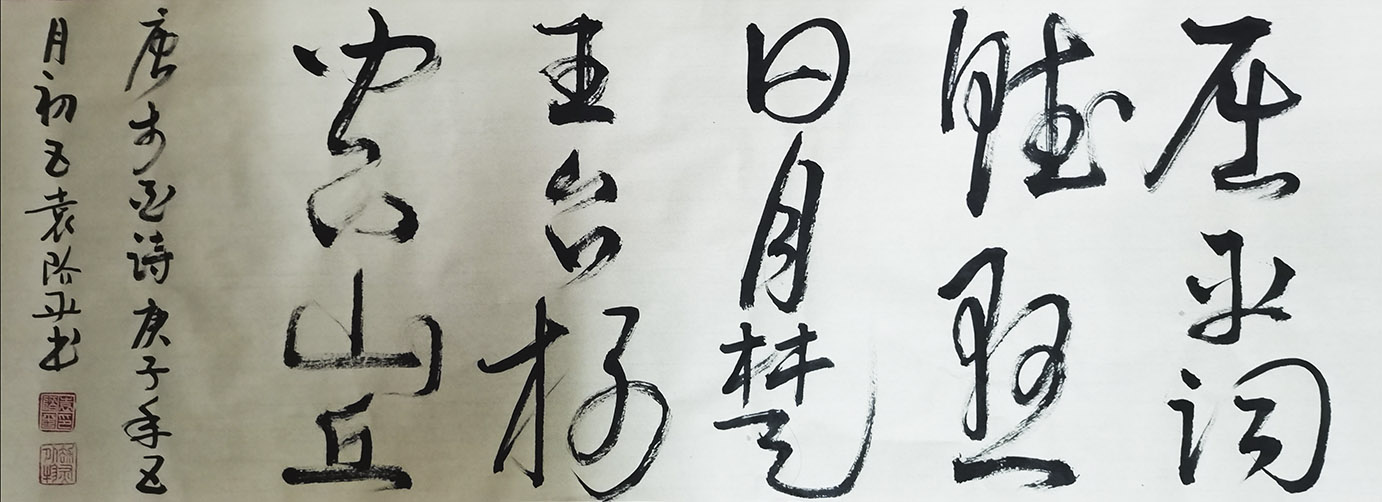 屈平词
赋悬
日月楚
王台榭
空山丘
唐李白诗庚子年五
月初五袁隆亚书